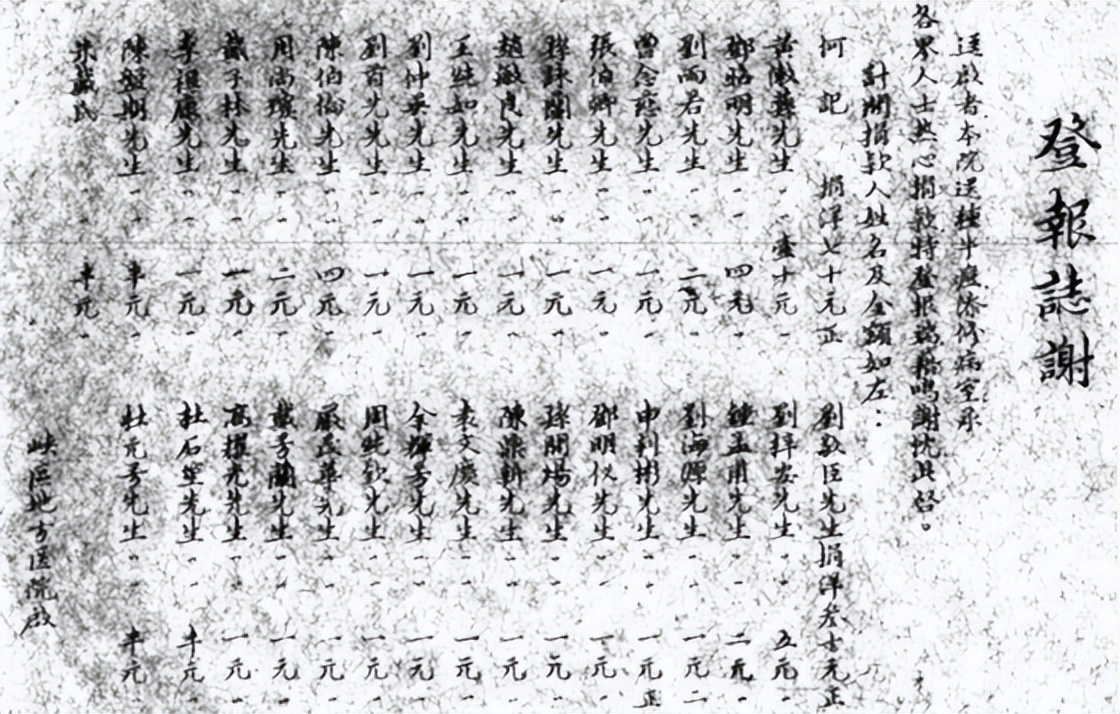 登報誌謝
逕啟者本院送種牛痘添修病室承
各界人士熱心捐款特登報端藉鳴謝忱此啓。
計開捐款人姓名及金額如左：
何記 捐洋七十元正
黃徵彝先生〃〃壹十元〃
鄭昭明先生〃〃四元〃
劉雨若先生〃〃二元〃
曾念慈先生〃〃一元〃
張伯卿先生〃〃一元〃
孫詠蘭先生〃〃一元〃
趙敏良先生〃〃一元〃
王純如先生〃〃一元〃
劉仲英先生〃〃一元〃
劉肖先先生〃〃一元〃
陳伯倫先生〃〃四元〃
周尚瓊先生〃〃二元〃
戴子林先生〃〃一元〃
李祖康先生〃〃一元〃
陳盤期先生〃〃半元〃
盛民〃〃半元〃
劉敬臣先生捐洋叁十元正
劉擇安先生〃〃五元〃
鍾孟甫先生〃〃二元〃
劉海源先生〃〃一元二
申利彬先生〃〃一元正
鄧明仪先生〃〃一元〃
孫開場先生〃〃一元〃
陳鼎新先生〃〃一元〃
袁文慶先生〃〃一元〃
余輝芳先生〃〃一元〃
周純欽先生〃〃一元〃
嚴民華先生〃〃一元〃
戴芳蘭先生〃〃一元〃
高耀先先生〃〃一元〃
杜石笙先生〃〃半元〃
杜元芳先生〃〃半元〃
峽區地方医院啟